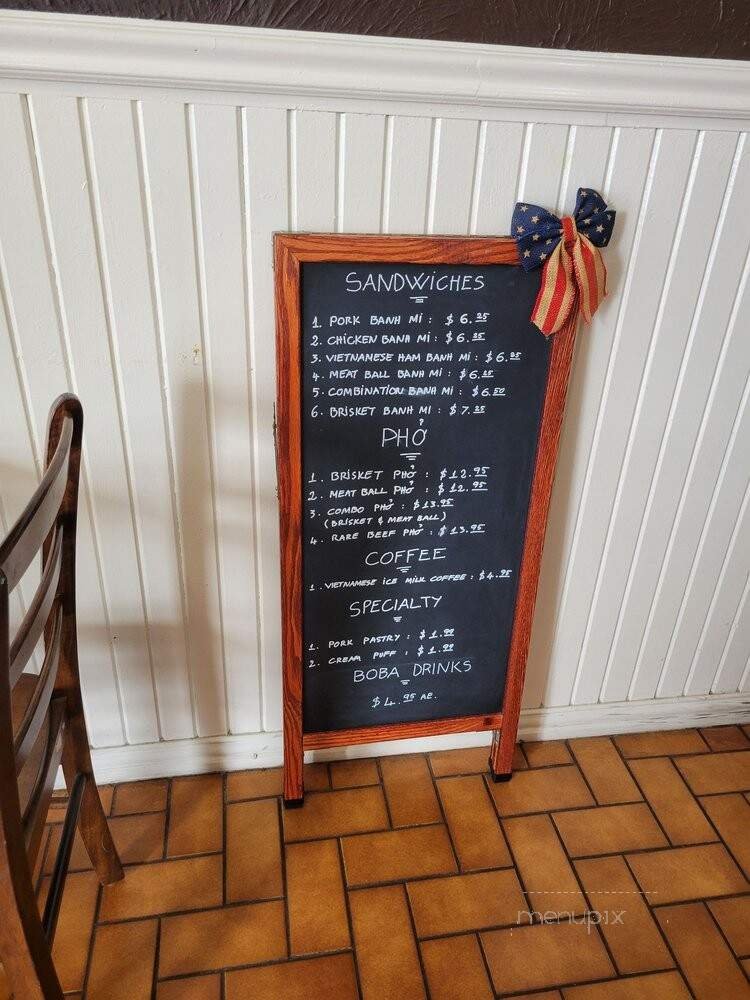 SANDWICHES
1. PORK BANH MI : $ 6.25
2. CHICKEN BANH MI : $ 6.25
3. VIETNAMESE HAM BANH MI : $ 6.25
4. MEAT BALL BANH MI : $ 6.25
5. COMBINATION BANH MI : $ 6.50
6. BRISKET BANH MI : $ 7.25
PHỞ
1. BRISKET PHỞ : $ 12.95
2. MEAT BALL PHỞ : $ 12.95
3. COMBO PHỞ : $ 13.95
(BRISKET & MEAT BALL)
4. RARE BEEF PHỞ : $ 13.95
COFFEE
1. VIETNAMESE ICE MILK COFFEE : $ 4.95
SPECIALTY
1. PORK PASTRY : $ 1.99
2. CREAM PUFF : $ 1.99
BOBA DRINKS
$ 4.95 AE.
menupix